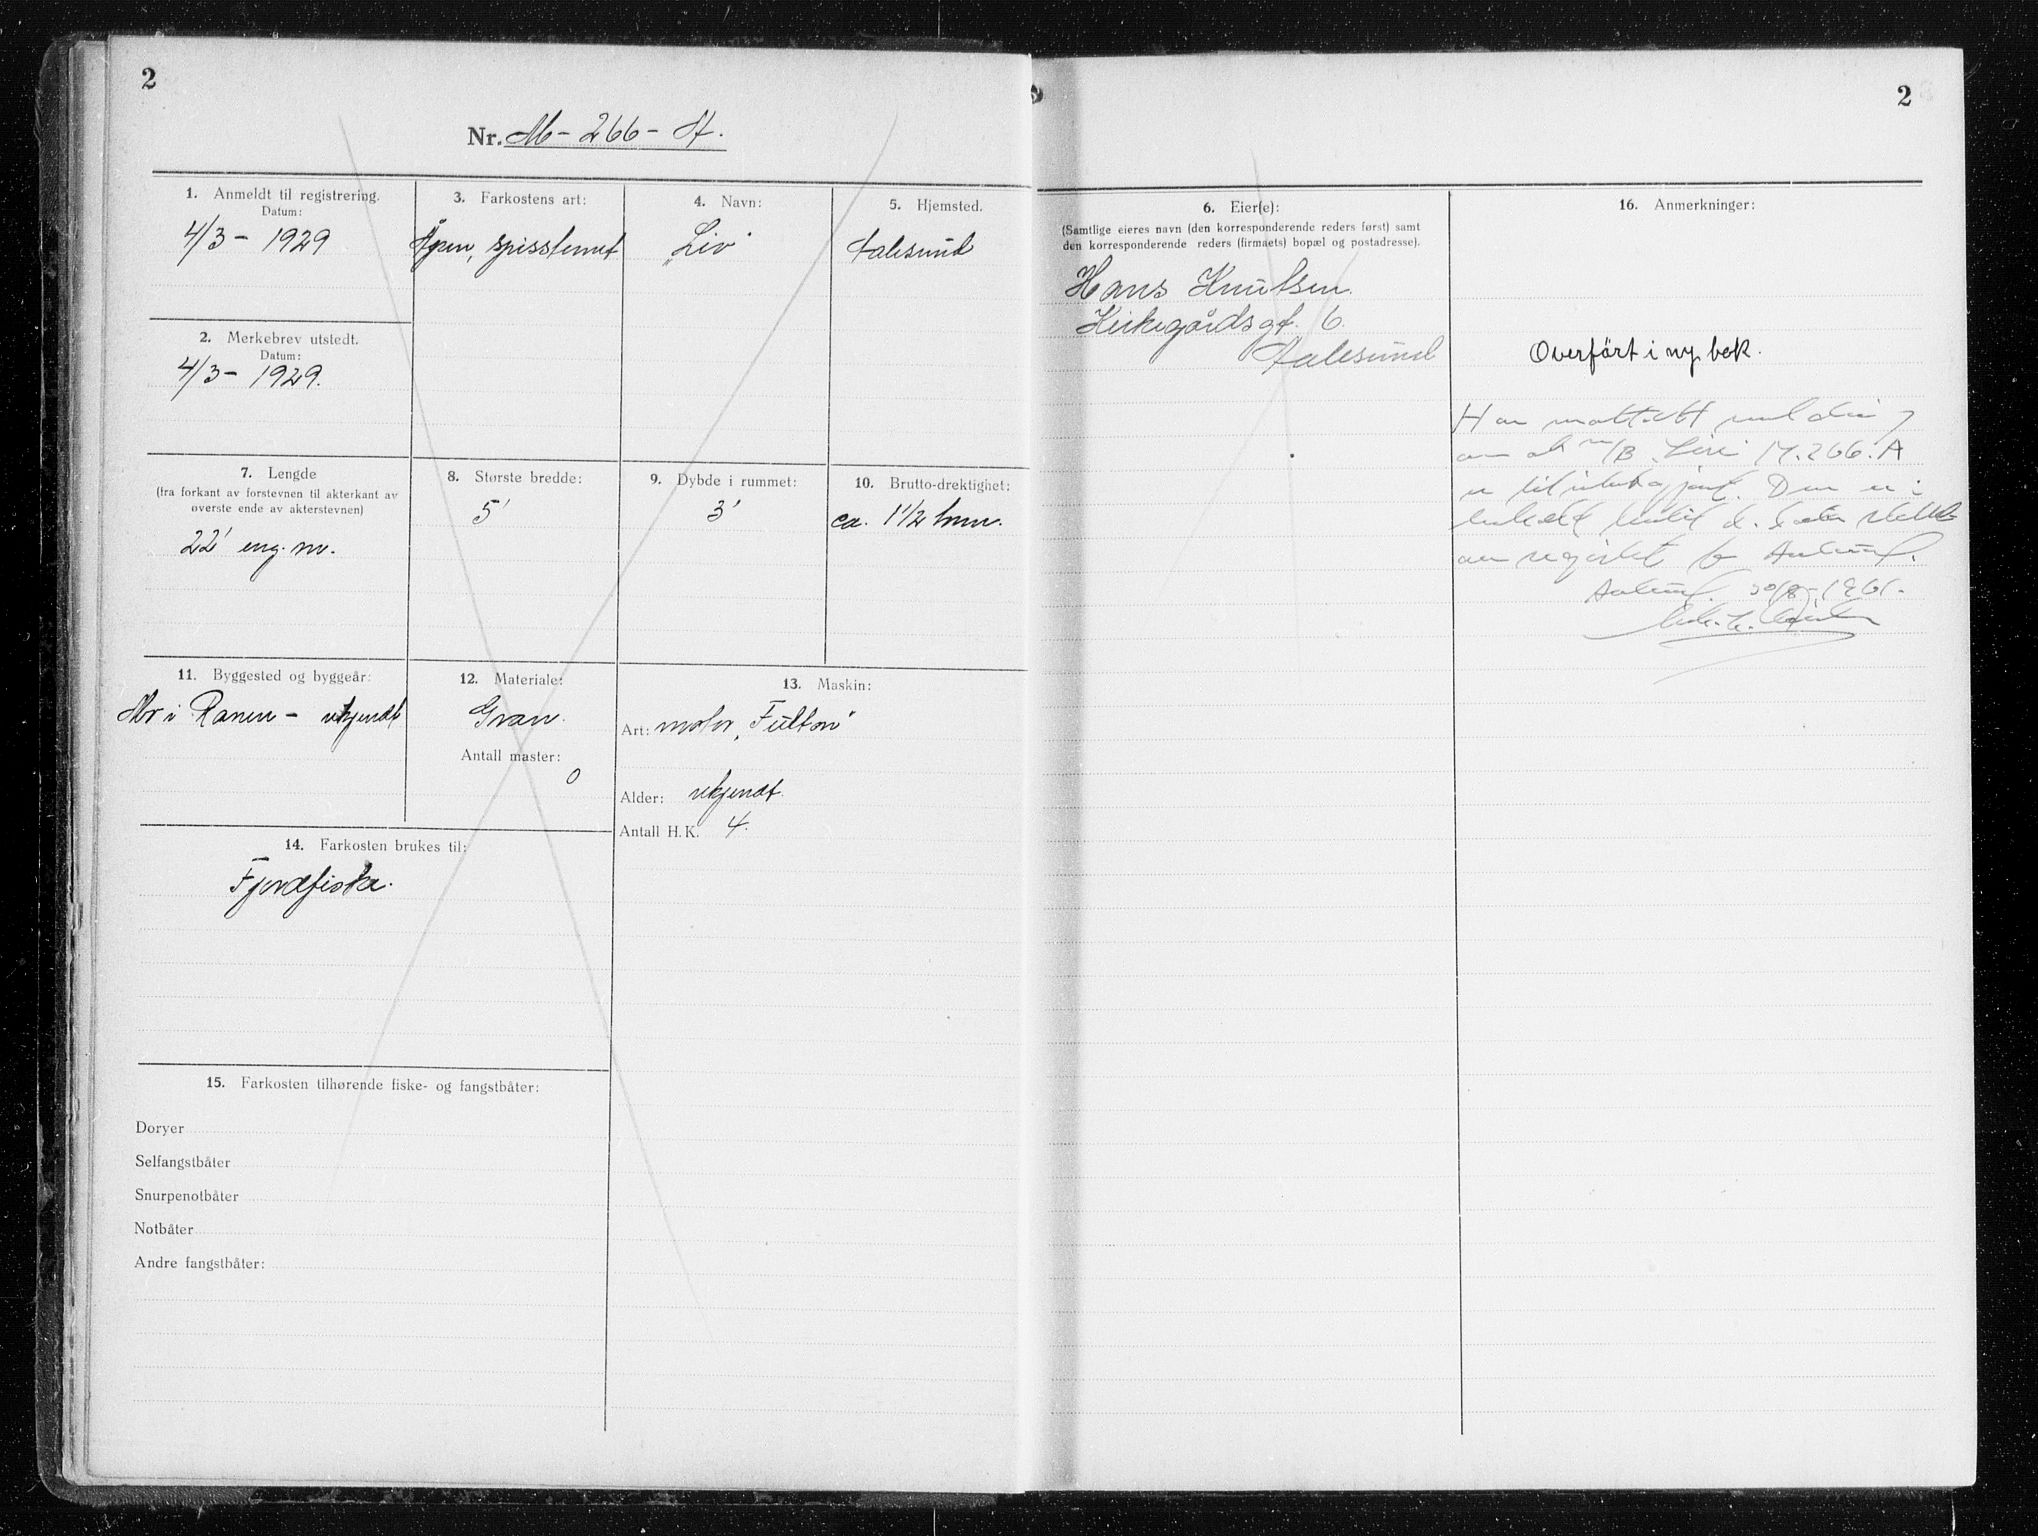 2
Nr. M-266-A.
1. Anmeldt til registrering.
Datum:
4/3 - 1929
2. Merkebrev utstedt.
Datum:
4/3 - 1929.
3. Farkostens art:
Åpen, spisstevnet
4. Navn:
„Liv"
5. Hjemsted.
Aalesund
7. Lengde
(fra forkant av forstevnen til akterkant av
øverste ende av akterstevnen)
22' eng. m.
8. Største bredde:
5'
9. Dybde i rummet:
3'
10. Brutto-drektighet:
ca. 1 1/2 tonn.
11. Byggested og byggeår:
Mo i Ranen - ukjendt
12. Materiale:
Gran.
Antall master:
0
13. Maskin:
Art: motor „Fulton"
Alder: ukjendt.
Antall H.K. 4.
14. Farkosten brukes til:
Fjordfiske.
15. Farkosten tilhørende fiske- og fangstbåter:
Doryer
Selfangstbåter
Snurpenotbåter
Notbåter
Andre fangstbåter:
2
6. Eier(e):
(Samtlige eieres navn (den korresponderende reders først) samt
den korresponderende reders (firmaets) bopæl og postadresse).
Hans Knutsen.
Kirkegårdsgt. 6.
Aalesund
16. Anmerkninger:
Overført i ny bok.
Har mottatt melding
om at m/B M.266.A
er Den er i
henhold hertil d. dato slettet
av registret for Ålesund.
Ålesund, 1961.